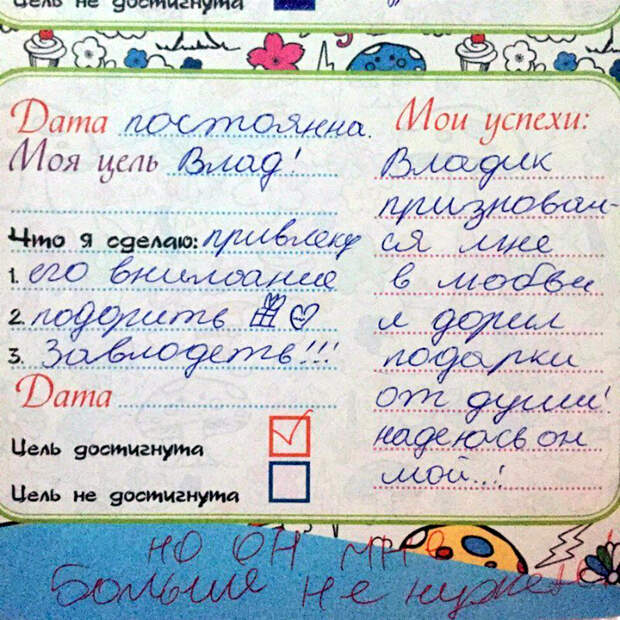 Цель не достигнута
Дата постоянна.
Моя цель Влад!
Что я сделаю: привлеку
1. его внимоание
2. подорить
3. Завлодеть!!!
Дата
Цель достигнута
Цель не достигнута
Мои успехи:
Владик
призновал-
ся мне
в любви
и дорил
подарки
от души!
надеюсь он
мой..!
но он мне
больше не нужен!!!